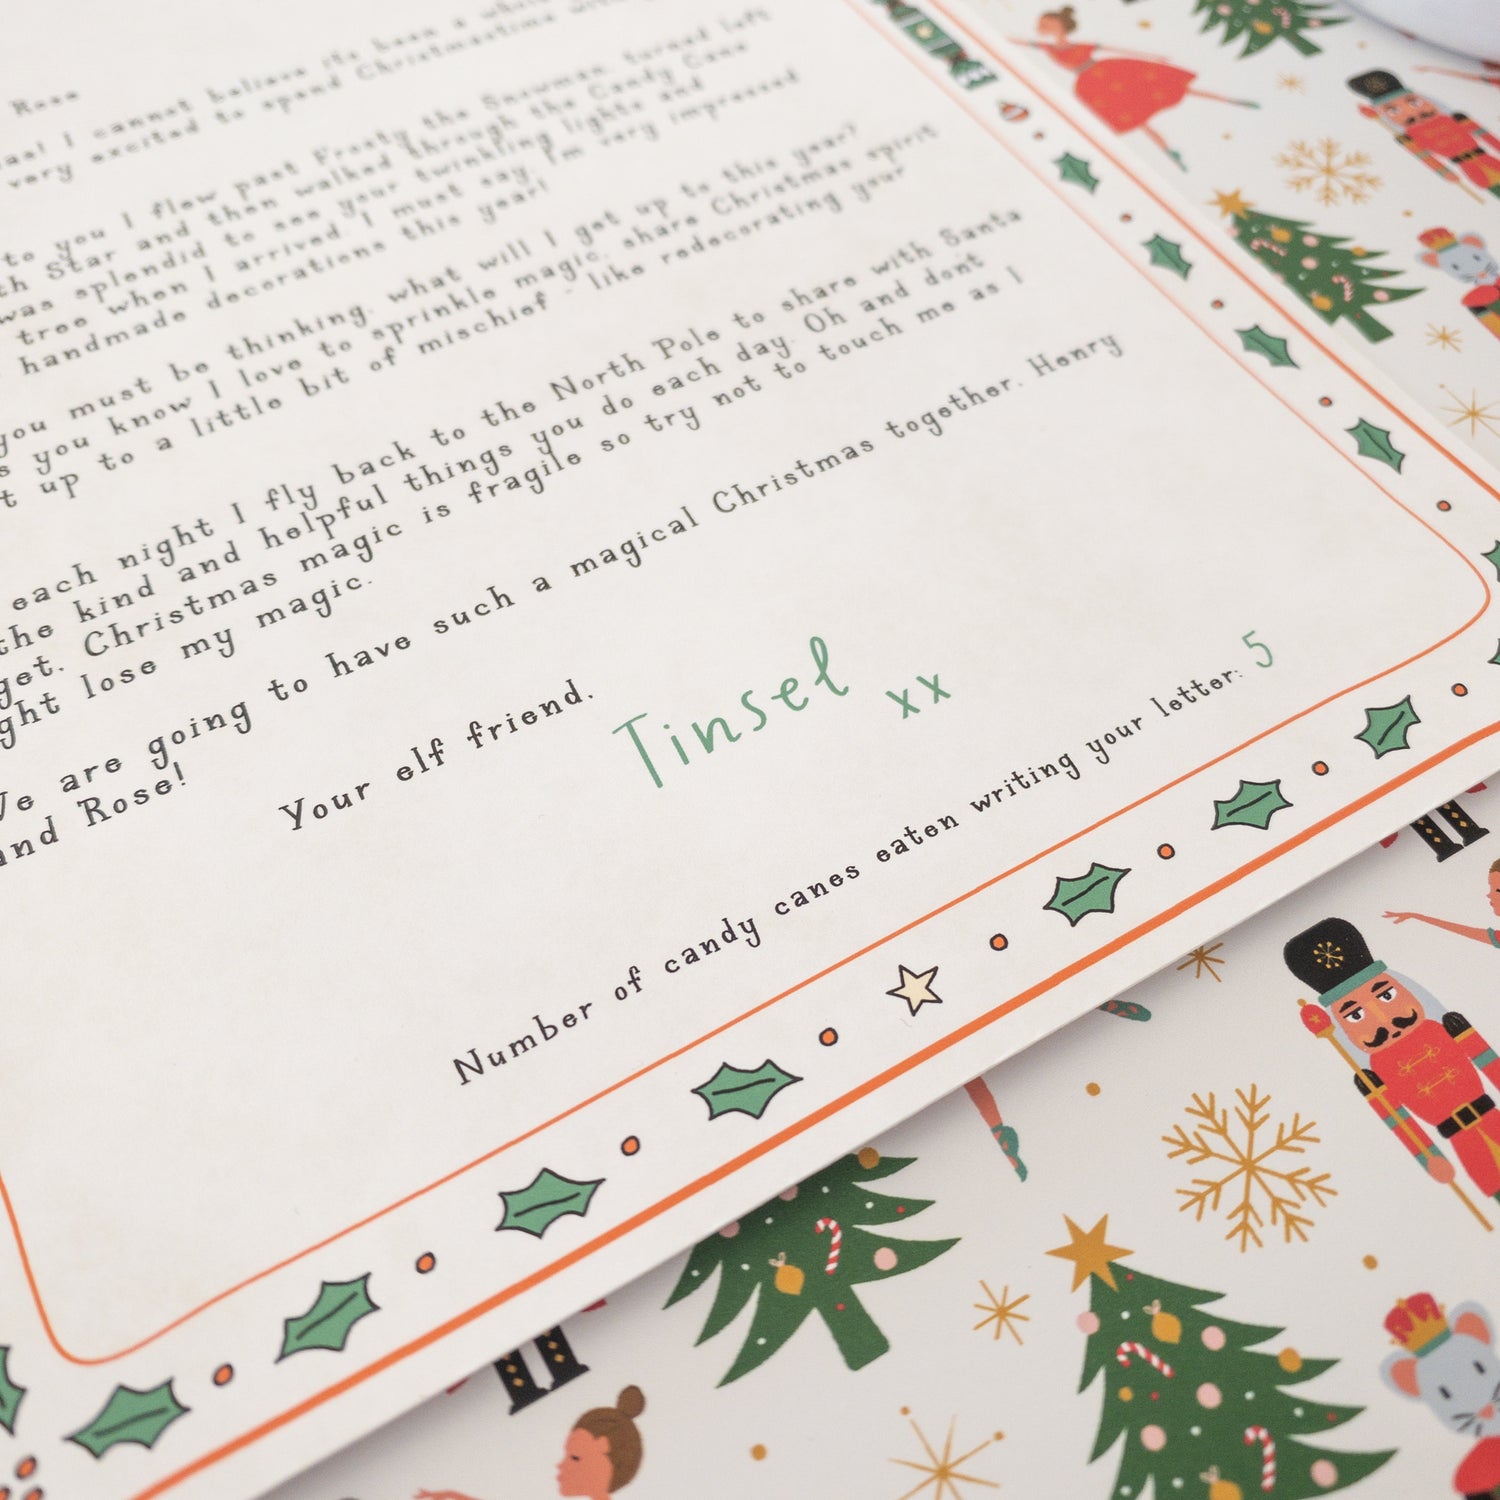 Rose
I cannot believe its been a whole
very excited to spend Christmastime with
to you I flew past Frosty the Snowman, turned left
Star and then walked through the Candy Cane
was splendid to see your twinkling lights and
tree when I arrived. I must say, I'm very impressed
handmade decorations this year!
you must be thinking, what will I get up to this year?
s you know I love to sprinkle magic, share Christmas spirit
t up to a little bit of mischief - like redecorating your
each night I fly back to the North Pole to share with Santa
the kind and helpful things you do each day. Oh and don't
get. Christmas magic is fragile so try not to touch me as I
ght lose my magic.
We are going to have such a magical Christmas together, Henry
and Rose!
Your elf friend,
Tinsel xx
Number of candy canes eaten writing your letter: 5